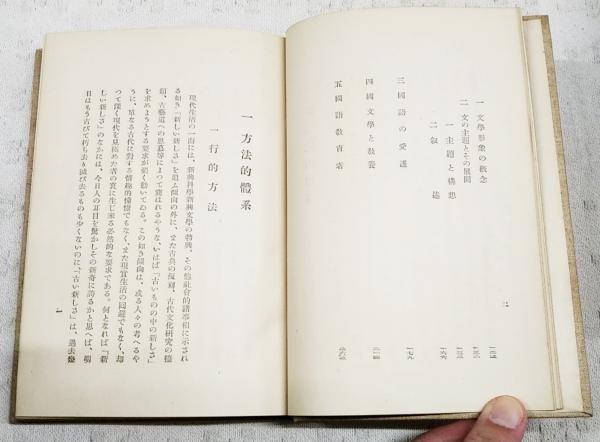 一 文學形象の概念
二 文の主題とその展開
一 主題と構想
二 叙述
三 國語の愛護
四 國文學と敎養
五 國語敎育者
二
一 方法的體系
一 行的方法
現代生活の一面には、新興科學新興文學の勃興、その他社會的諸事相に示され
る如き「新しい新しさ」を追ふ傾向の外に、また古典の復刻、古代文化硏究の擡
頭、古藝道への思慕等によつて窺はれるやうな、いはば「古いものの中の新しさ」
を求めようとする要求が動いてゐる。この如き傾向は、或る人々の考へるや
うに、單なる古代に對する情趣的憧憬でもなく、また現實生活の囘避でもなく、却
つて深く現代を見極めた者の衷に生じ來る必然的な要求である。何となれば「新
しい新しさ」のなかには、今日人の耳目を驚かしその新奇に誇るかと思へば、明
日はもう古びて朽ち去り滅び去るものも少くないのに、「古い新しさ」は、過去幾
一